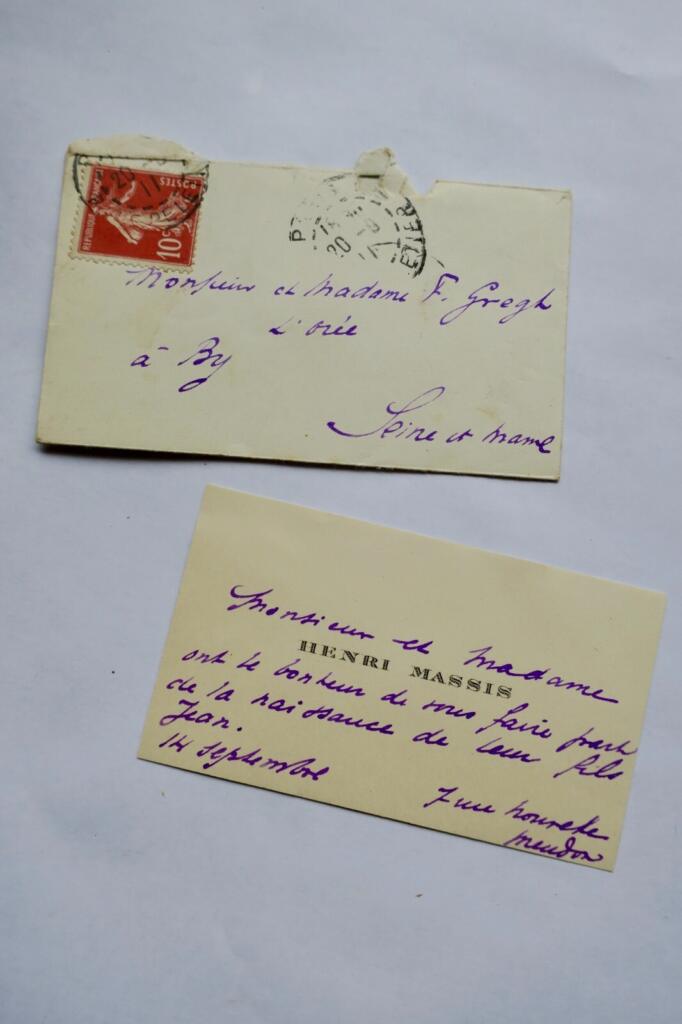 REPUBLIQUE FRANÇAISE
POSTES
10c
20
11
20 - 9
11
Monsieur et Madame F. Gregh
L'orée
à By
Seine et marne
Monsieur et Madame
HENRI MASSIS
ont le bonheur de vous faire part
de la naissance de leur fils
Jean.
14 septembre
7 rue
meudon